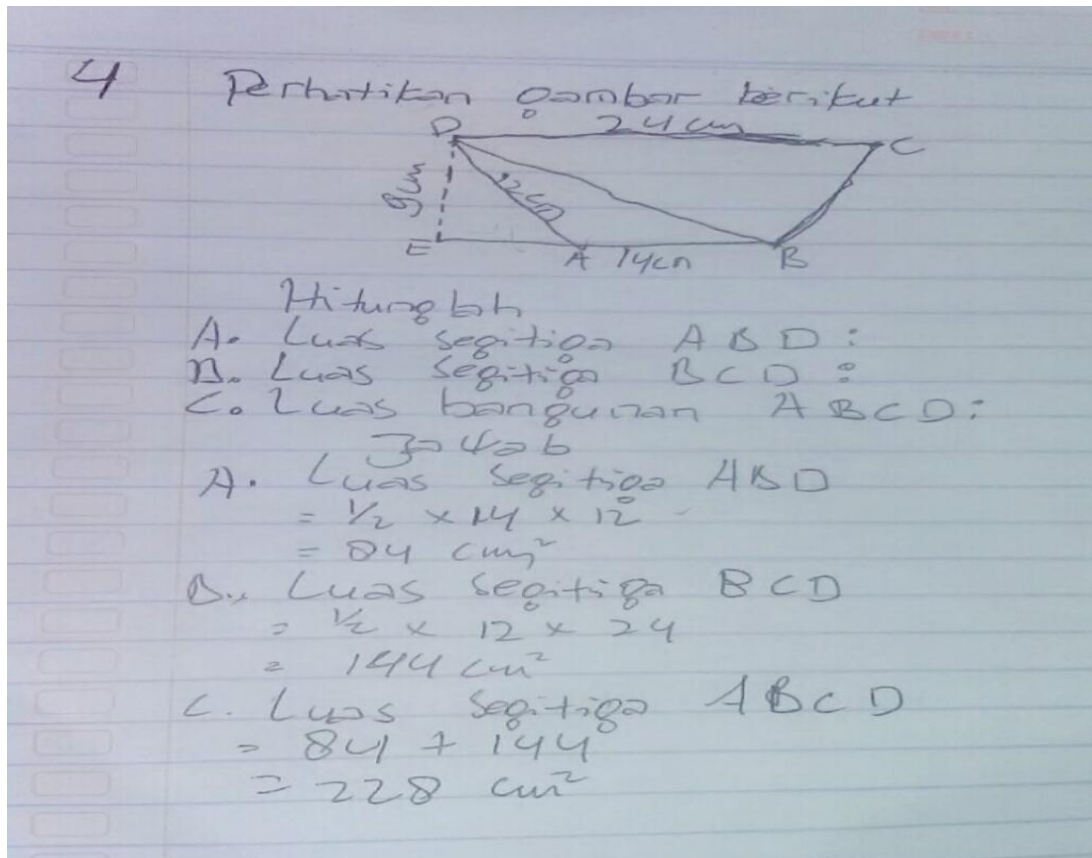 4 Perhatikan gambar berikut
D 24 cm C
9cm 12cm
E A 14cm B
Hitunglah
A. Luas segitiga ABD :
B. Luas segitiga BCD :
C. Luas bangunan ABCD :
Jawab
A. Luas segitiga ABD
= 1/2 × 14 × 12
= 84 cm²
B. Luas segitiga BCD
= 1/2 × 12 × 24
= 144 cm²
C. Luas segitiga ABCD
= 84 + 144
= 228 cm²